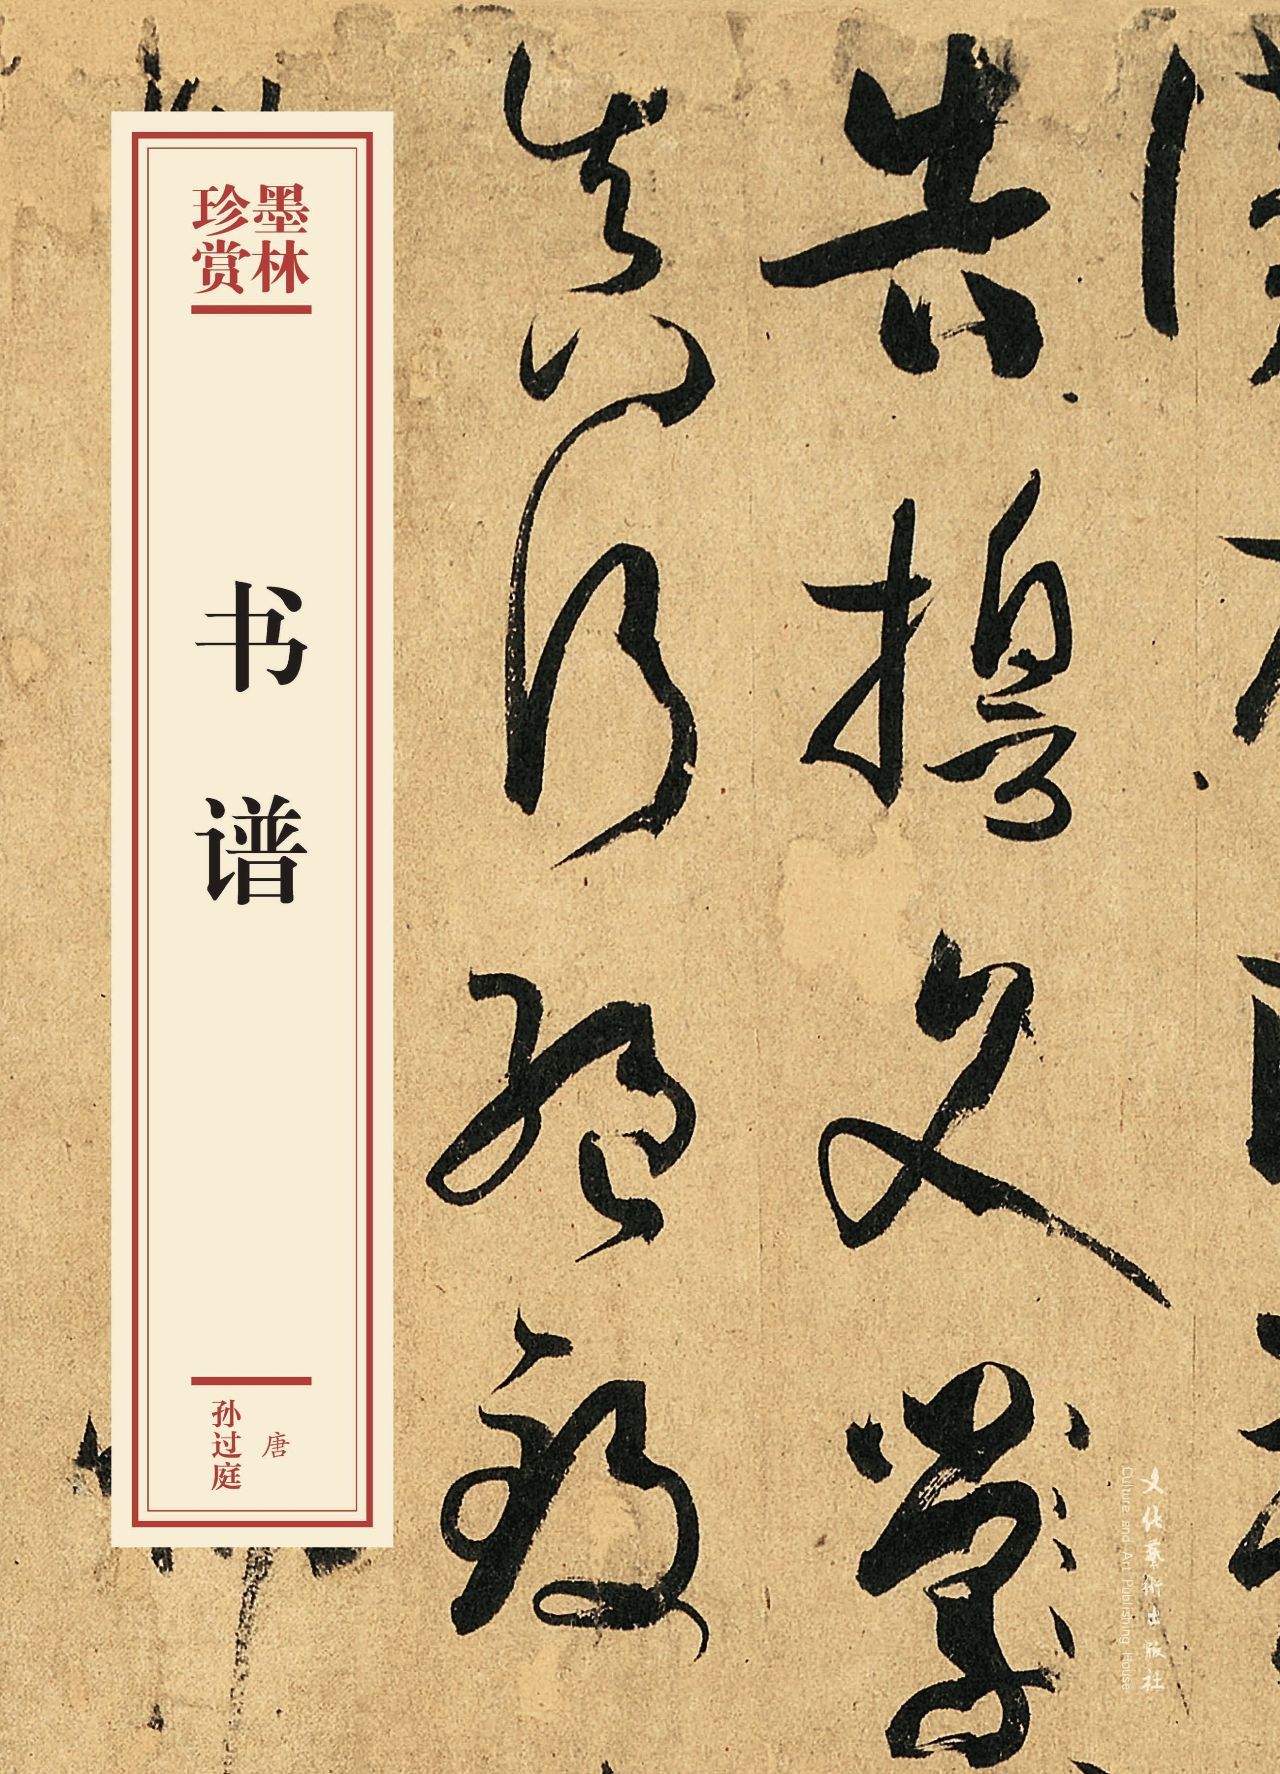 墨林
珍赏
书谱
唐
孙过庭
告誓文
真行绝致
文化艺术出版社
Culture and Art Publishing House